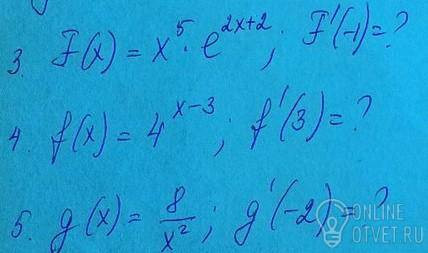 3. F(x) = x⁵·e^{2x+2}; F'(-1)=?
4. f(x) = 4^{x-3}; f'(3)=?
5. g(x) = 8/x²; g'(-2)=?
ONLINE
OTVET.RU